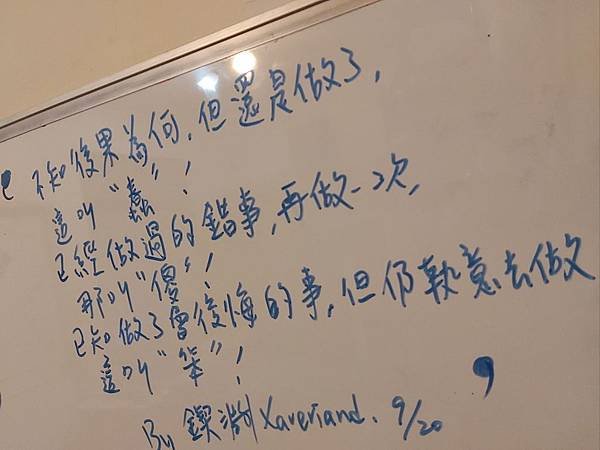 不知後果為何，但還是做了，
這叫“蠢”！
已經做過的錯事，再做一次，
那叫“傻”！
已知做了會後悔的事，但仍執意去做
這叫“笨”！
By 鍥淵 Xaveriand. 9/20